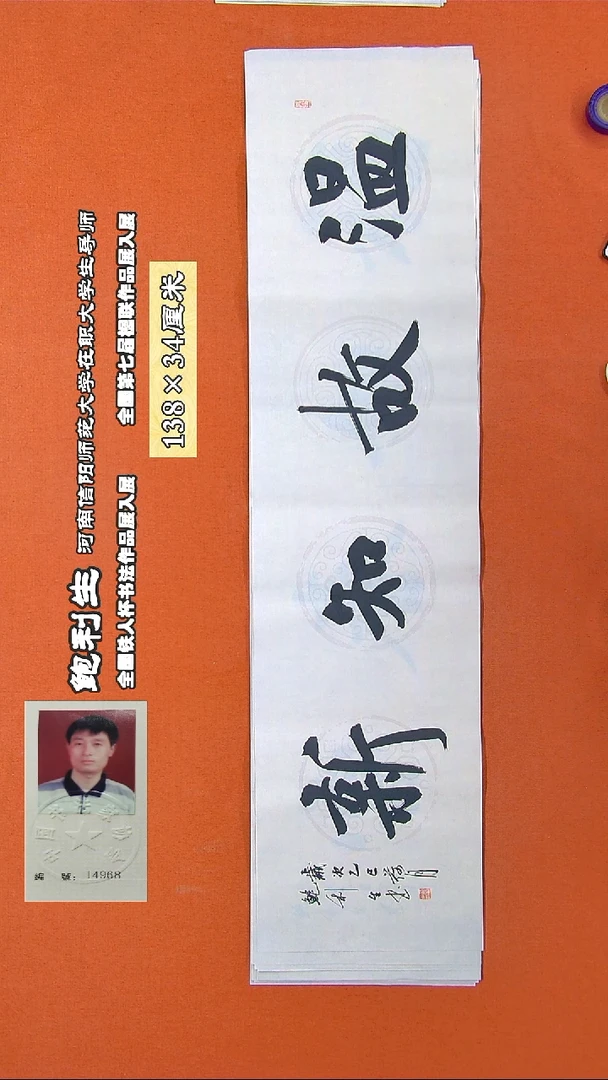 鲍利生 河南信阳师范大学在职大学生导师
全国铁人杯书法作品展入展 全国第七届楹联作品展入展
138×34厘米
編 號：14968
温故知新
歲次乙巳荷月
鲍利生书